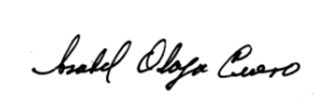 Isabel Olaya Cuero